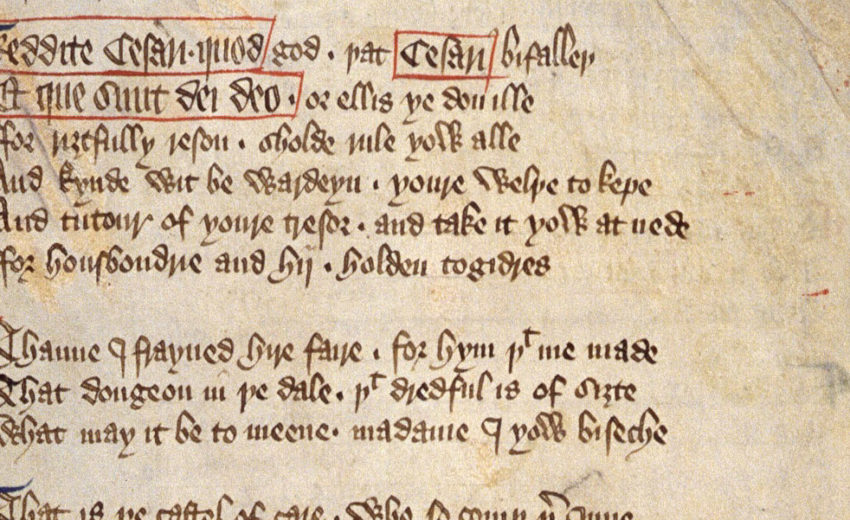 Reddite Cesari · quod god · þat Cesari bifalleþ
Et que sunt dei deo · or ellis ye don ille
For riȝtfully reson · sholde rule yow alle
And kynde wit be wardeyn · youre welþe to kepe
And tutour of youre tresor · and take it yow at nede
For housbondrie and hij · holden togidres
Thanne I frayned hire faire · for hym þᵗ me made
That dongeon in þe dale · þᵗ dredful is of siȝte
What may it be to meene · madame I yow biseche
That is þe castel of care · who so comþ